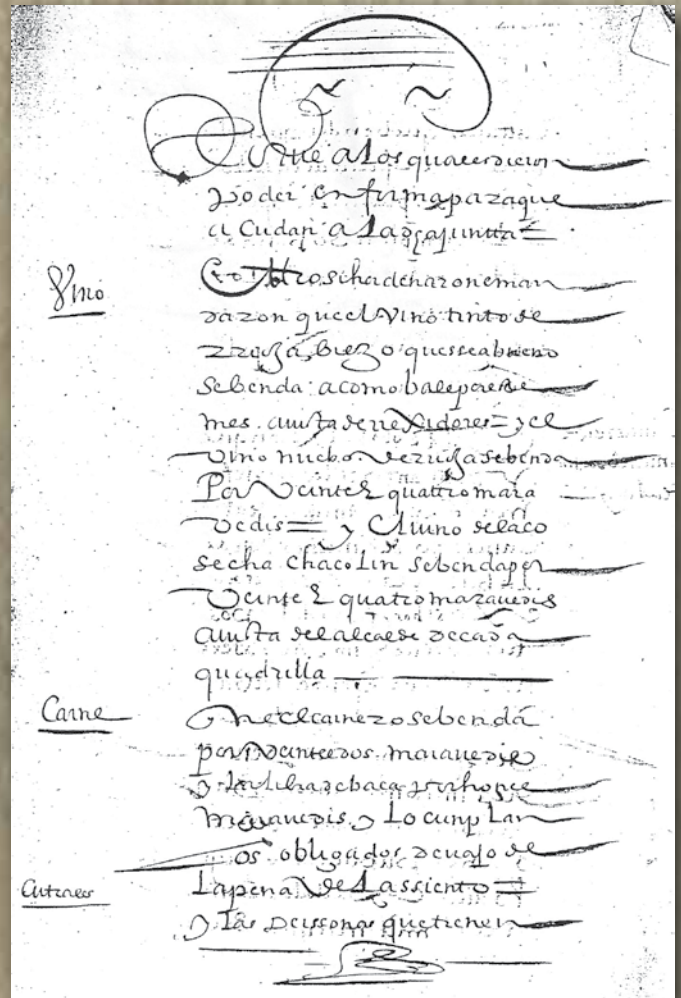 que a los que
poder en forma para que
acudan a la dha junta =
Vino
Otrosi hordenaron e man
daron que el vino tinto de
rrioja, biexo que sea bueno
se benda a como bale por ese
mes a uista de rrexidores = y el
vino nuebo de rioja se benda
Por Veinte & quattro mara
vedis = y el uino de la co
secha chacolin se benda por
Veinte & quatro marauedis
a uista del alcalde de cada
quadrilla
Carne
que el carnero se benda
por Veinte e dos marauedis
y la libra de baca por honce
marauedis y lo cunplan
los obligados devajo de
la pena del assiento =
y las perssonas que tienen